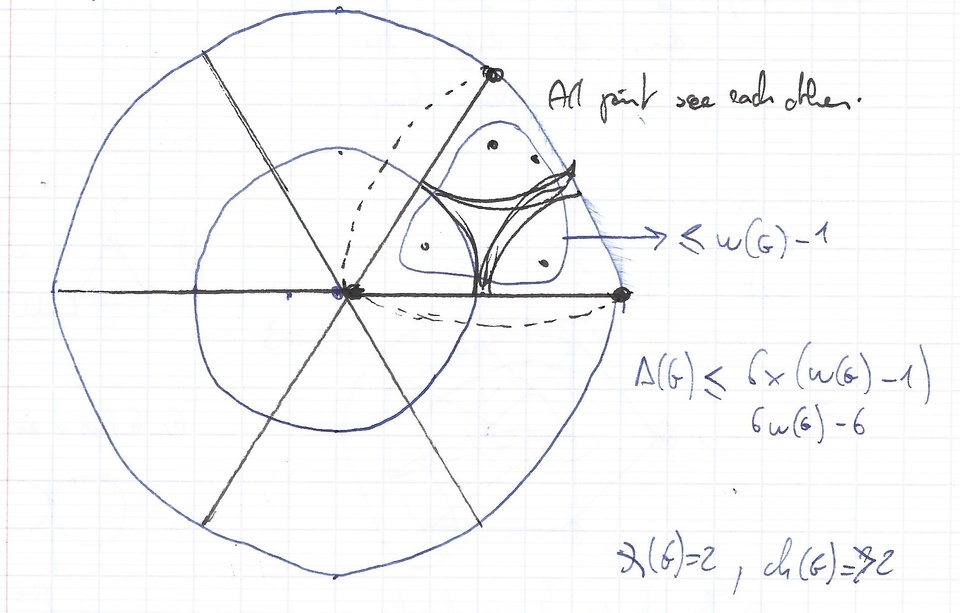 All point see each other.
≤ ω(G) - 1
Δ(G) ≤ 6 × (ω(G) - 1)
6ω(G) - 6
χ(G)=2 , ch(G)=>2